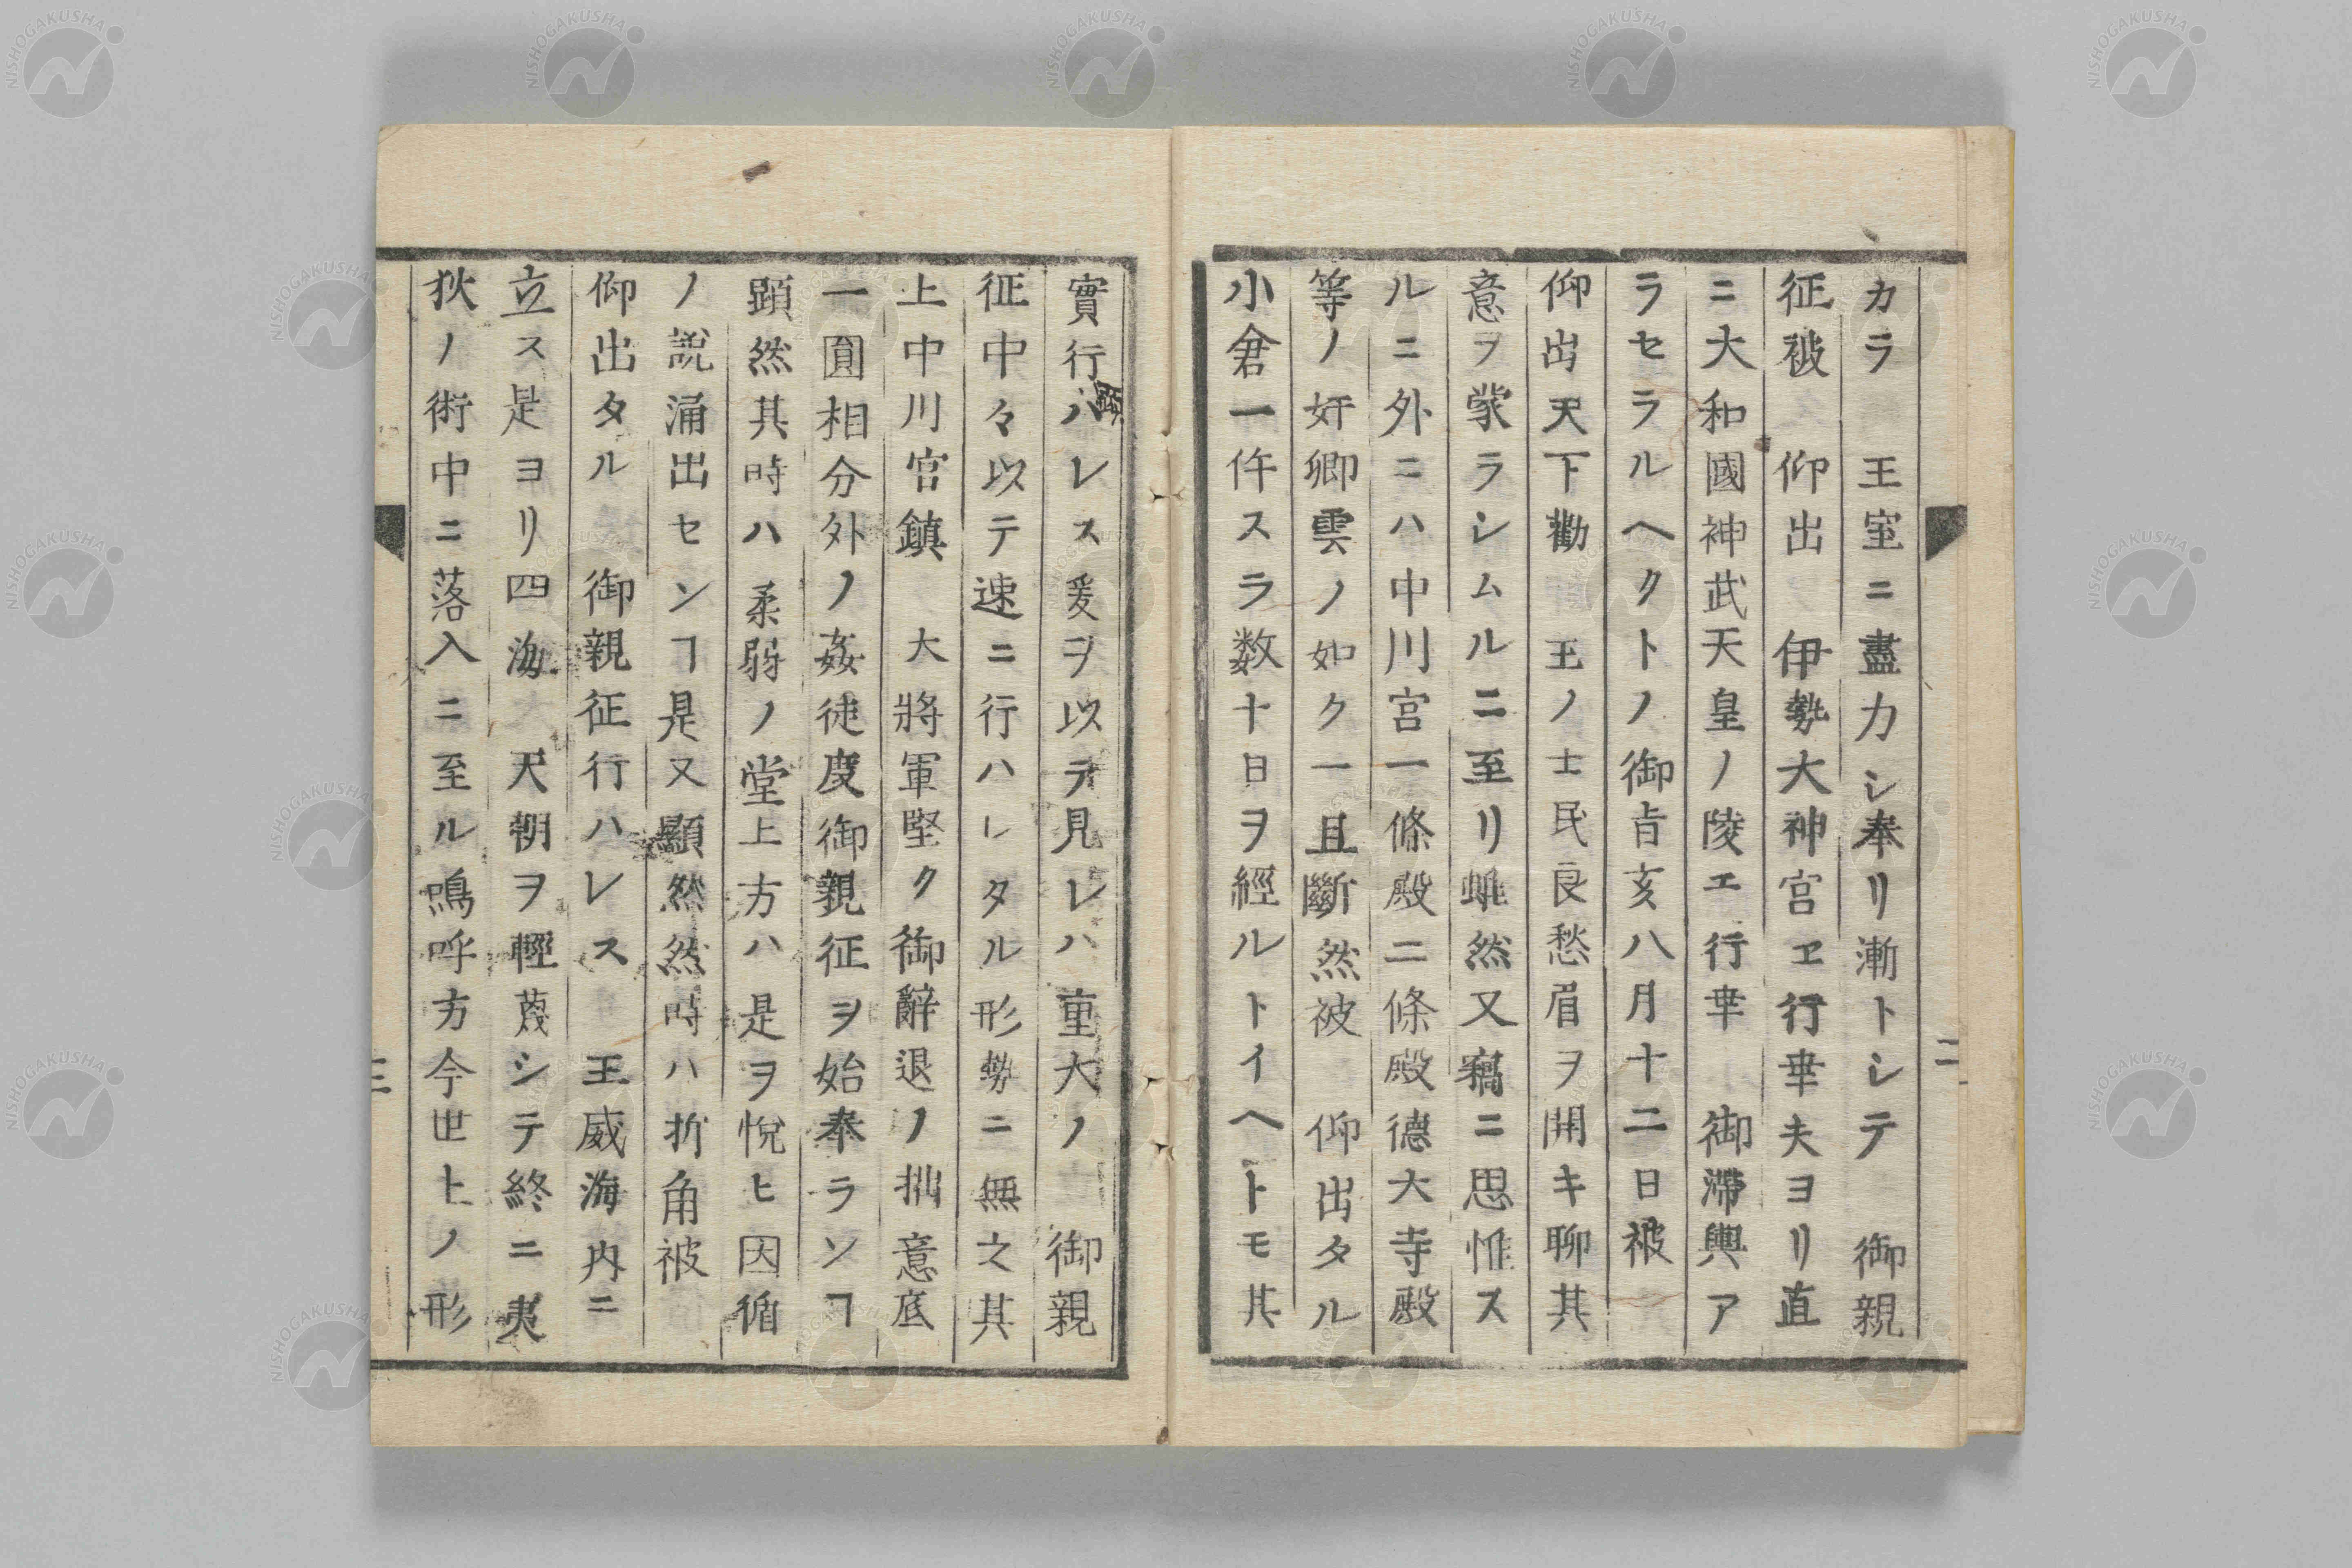 カラ　王室ニ盡力シ奉リ漸トシテ　御親
征被　仰出　伊勢大神宮ヱ行幸夫ヨリ直
ニ大和國神武天皇ノ陵エ行幸　御滯輿ア
ラセラルヘクトノ御旨亥八月十二日被
仰出天下勸　王ノ士民良愁眉ヲ開キ聊其
意ヲ蒙ラシムルニ至リ雖然又竊ニ思惟ス
ルニ外ニハ中川宮一條殿二條殿德大寺殿
等ノ奸卿雲ノ如ク一且斷然被　仰出タル
小倉一件スラ数十日ヲ經ルトイヘトモ其
二
實行ハレス爰ヲ以テ見レハ重大ノ　御親
征中々以テ速ニ行ハレタル形勢ニ無之其
上中川宮鎮　大將軍堅ク御辭退ノ拙意底
一圓相分外ノ姦徒度御親征ヲ始奉ランヿ
顕然其時ハ柔弱ノ堂上方ハ是ヲ悅ヒ因循
ノ説涌出センヿ是又顯然然時ハ折角被
仰出タル　御親征行ハレス　王威海内ニ
立ス是ヨリ四海　天朝ヲ輕蔑シテ終ニ夷
狄ノ術中ニ落入ニ至ル鳴呼方今世上ノ形
三
NISHOGAKUSHA